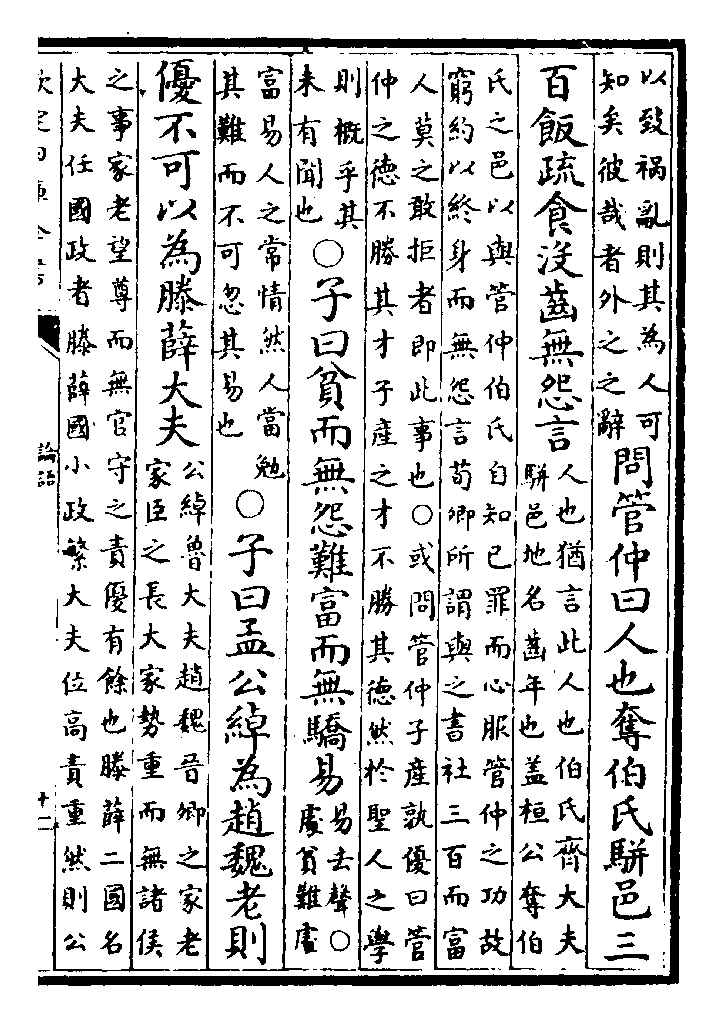 以致禍亂則其為人可
知矣彼哉者外之之辭
問管仲曰人也奪伯氏駢邑三
百飯疏食沒齒無怨言
人也猶言此人也伯氏齊大夫
駢邑地名齒年也盖桓公奪伯
氏之邑以與管仲伯氏自知已罪而心服管仲之功故
窮約以終身而無怨言荀卿所謂與之書社三百而富
人莫之敢拒者即此事也○或問管仲子產孰優曰管
仲之德不勝其才子產之才不勝其德然於聖人之學
則概乎其
未有聞也
○子曰貧而無怨難富而無驕易
易去聲○
處貧難處
富易人之常情然人當勉
其難而不可忽其易也
○子曰孟公綽為趙魏老則
優不可以為滕薛大夫
公綽魯大夫趙魏晉卿之家老
家臣之長大家勢重而無諸侯
之事家老望尊而無官守之責優有餘也滕薛二國名
大夫任國政者滕薛國小政繁大夫位高責重然則公
欽定四庫全書
論語
十二